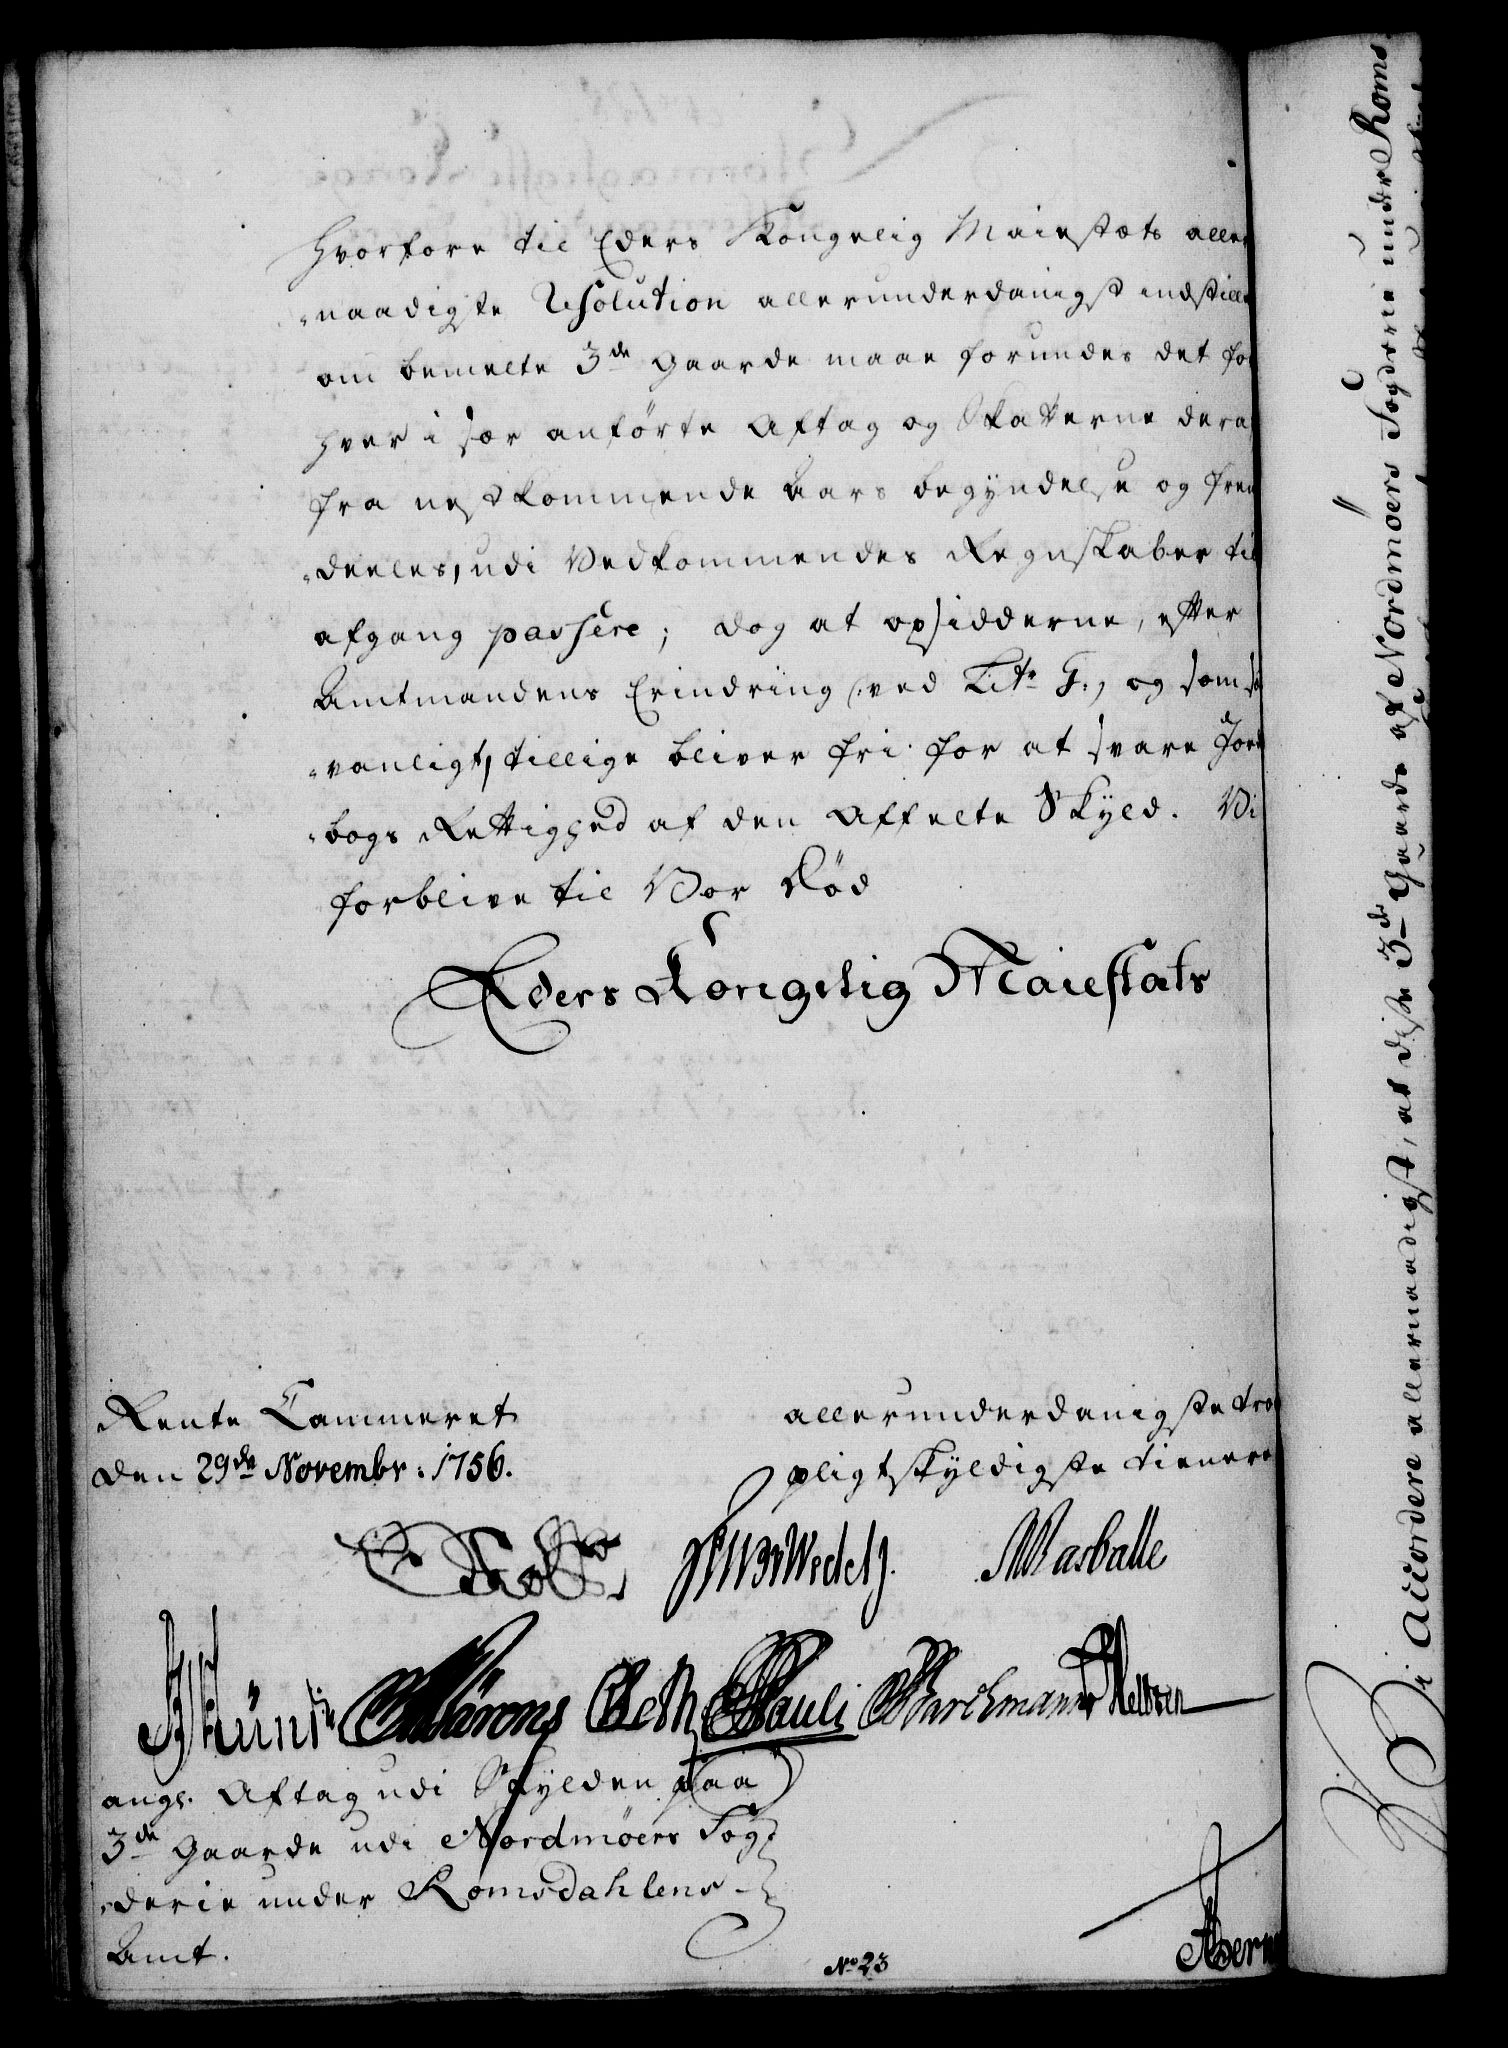 hvorfore til Eders Kongelig Maiestæts aller
-naadigste Resolution allerunderdanigst indstilles
om bemelte 3de Gaarde maae forundes det for
hver i sær anførte Aftag og Skatterne deraf
fra nestkommende Aars begyndelse og frem
-deeles, udi Vedkommendes Regnskaber til
afgang passere; dog at opsidderne, efter
Amtmandens Erindring /: ved Litr. F:, og som sæd
-vanligt, tillige bliver fri for at svare Jorde
-bogs Rettighed af den affelte Skyld. Vi
forblive til Vor Død
Eders Kongelig Maiestæts
Rente Cammeret
den 29de Novembr: 1756.
allerunderdanigste troe
pligtskyldigste tienere
Wedelj.
Wasballe
Pauli
angl. Aftag udi Skylden paa
3de Gaarde udi Nordmøers Fog
-derie under Romsdahlens
Amt.
No 23
Vi Accordere allernaadigst, at disse 3de Gaarde af Nordmøers Fogderie under Roms